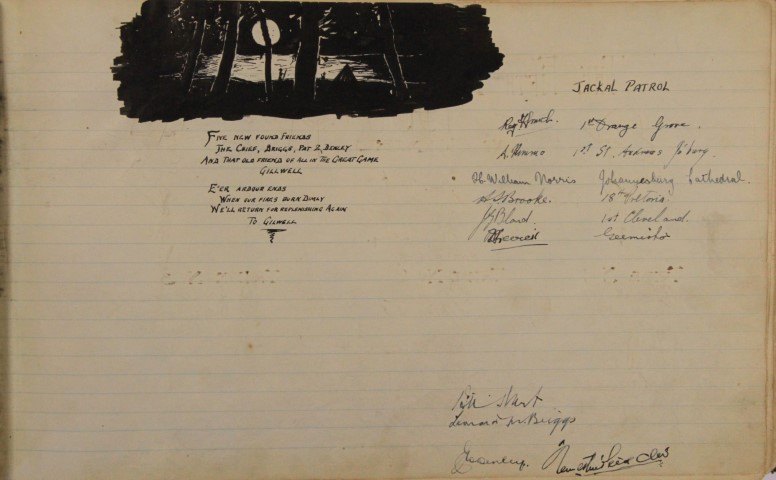 FIVE NEW FOUND FRIENDS
THE CHIEF, BRIGGS, PAT &, DENLY
AND THAT OLD FRIEND OF ALL IN THE GREAT GAME
GILLWELL
E'ER ARDOUR ENDS
WHEN OUR FIRES BURN DIMLY
WE'LL RETURN FOR REPLENISHING AGAIN
TO GILWELL
JACKAL PATROL
Reg 1st Orange Grove.
1st St. Andrews Jo'burg.
William Norris Johannesburg Cathedral.
Brooke. 18th Pretoria
Bland. 1st Cleveland.
Germiston
Briggs